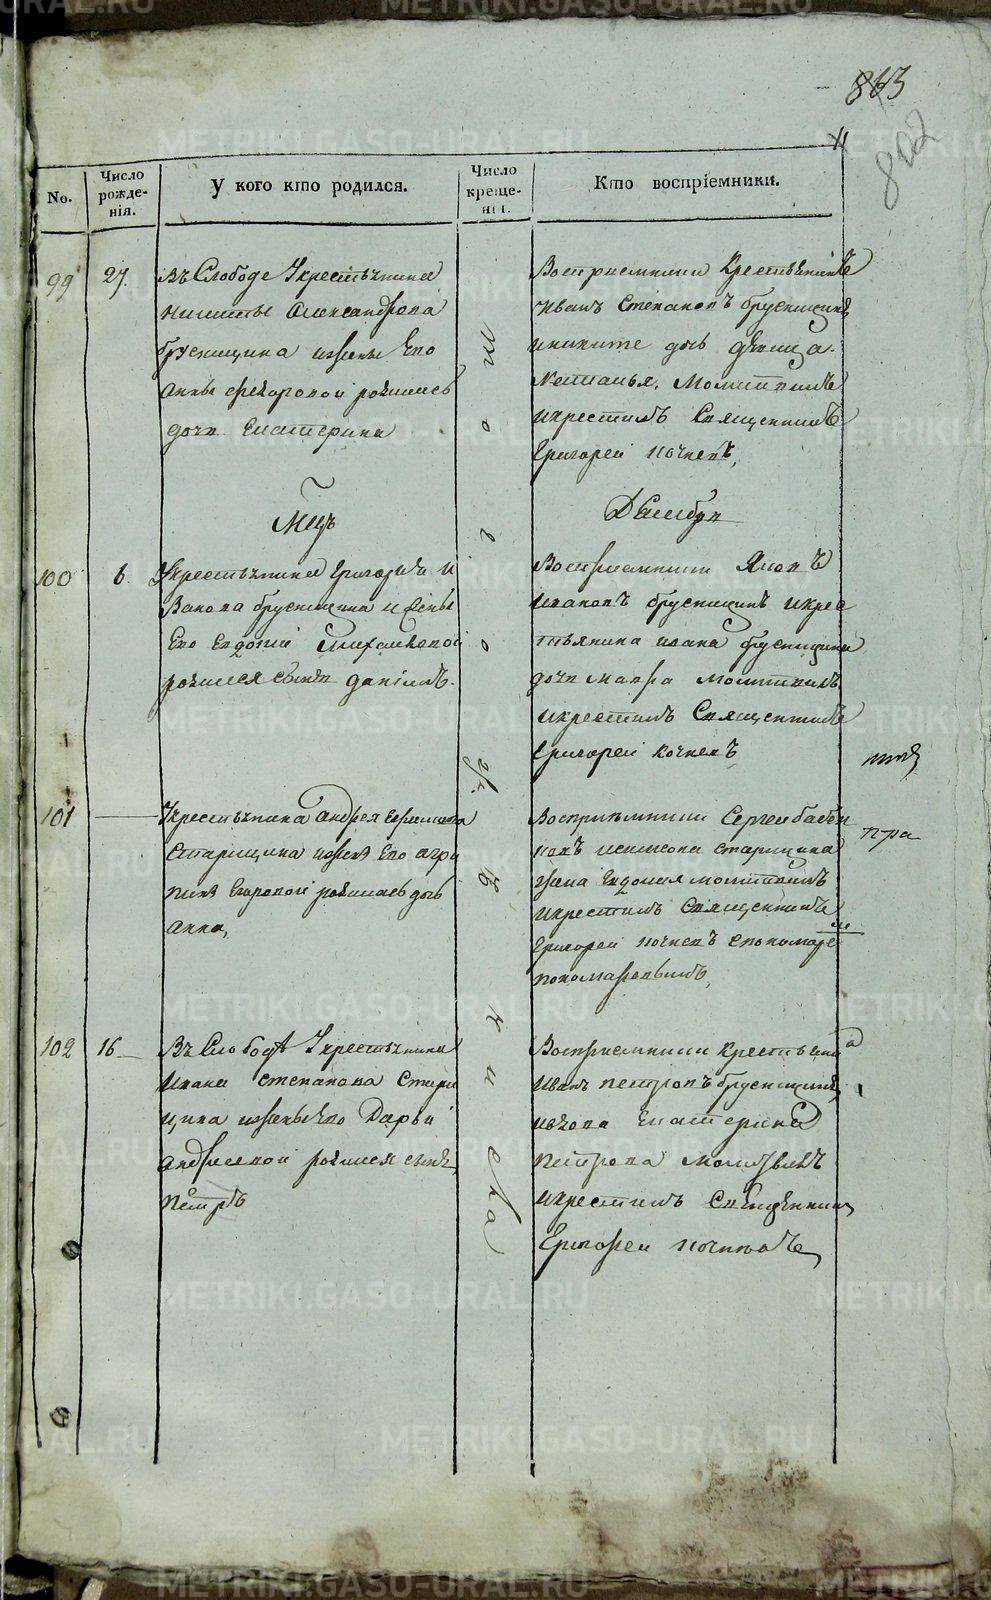 863
802
No.
Число рожде-нія.
У кого кто родился.
Число креще-нія.
Кто воспріемники.
99
27.
Въ Слободе Укрестьянина
Никиты Александрова
брусницина ижены Его
Анны Федоровой родилась
дочь Екатерина
Восприемники Крестьянинъ
Иванъ Степановъ брусницинъ
иниките дочь девица
Наталья. Молитвилъ
икрестилъ Священникъ
Григореи Кочневъ,
Мцъ
Декабрь
100
6.
Укрестьянина Григорья И
Ванова брусницина ижены
Его Евдокіи Михаиловой
родился сынъ Даніилъ.
Восприемники Яковъ
Ивановъ брусницинъ икрес
тьянина ивана брусницина
дочь Мавра Молитвилъ
икрестилъ Священникъ
Григореи Кочневъ
101
Укрестьянина Андрея
Старицина ижены Его Агри
пины Егоровой родилась дочь
Анна,
Восприемники Сергеи
жена Евдокия молитвилъ
икрестилъ Священникъ
Григореи Кочневъ спономаре
м
пономаревымъ,
пра
102
16
Въ Слободѣ Укрестьянина
Ивана Степанова Стари
цина ижены Его Дарьи
Андреевой родился сынъ
Петръ
Восприемники крестьянина
Иванъ Петровъ брусницинъ
ивдова Екатерина
Петрова Молитвилъ
икрестилъ Священникъ
Григореи Кочневъ
того
же
числа
METRIKI.GASO-URAL.RU